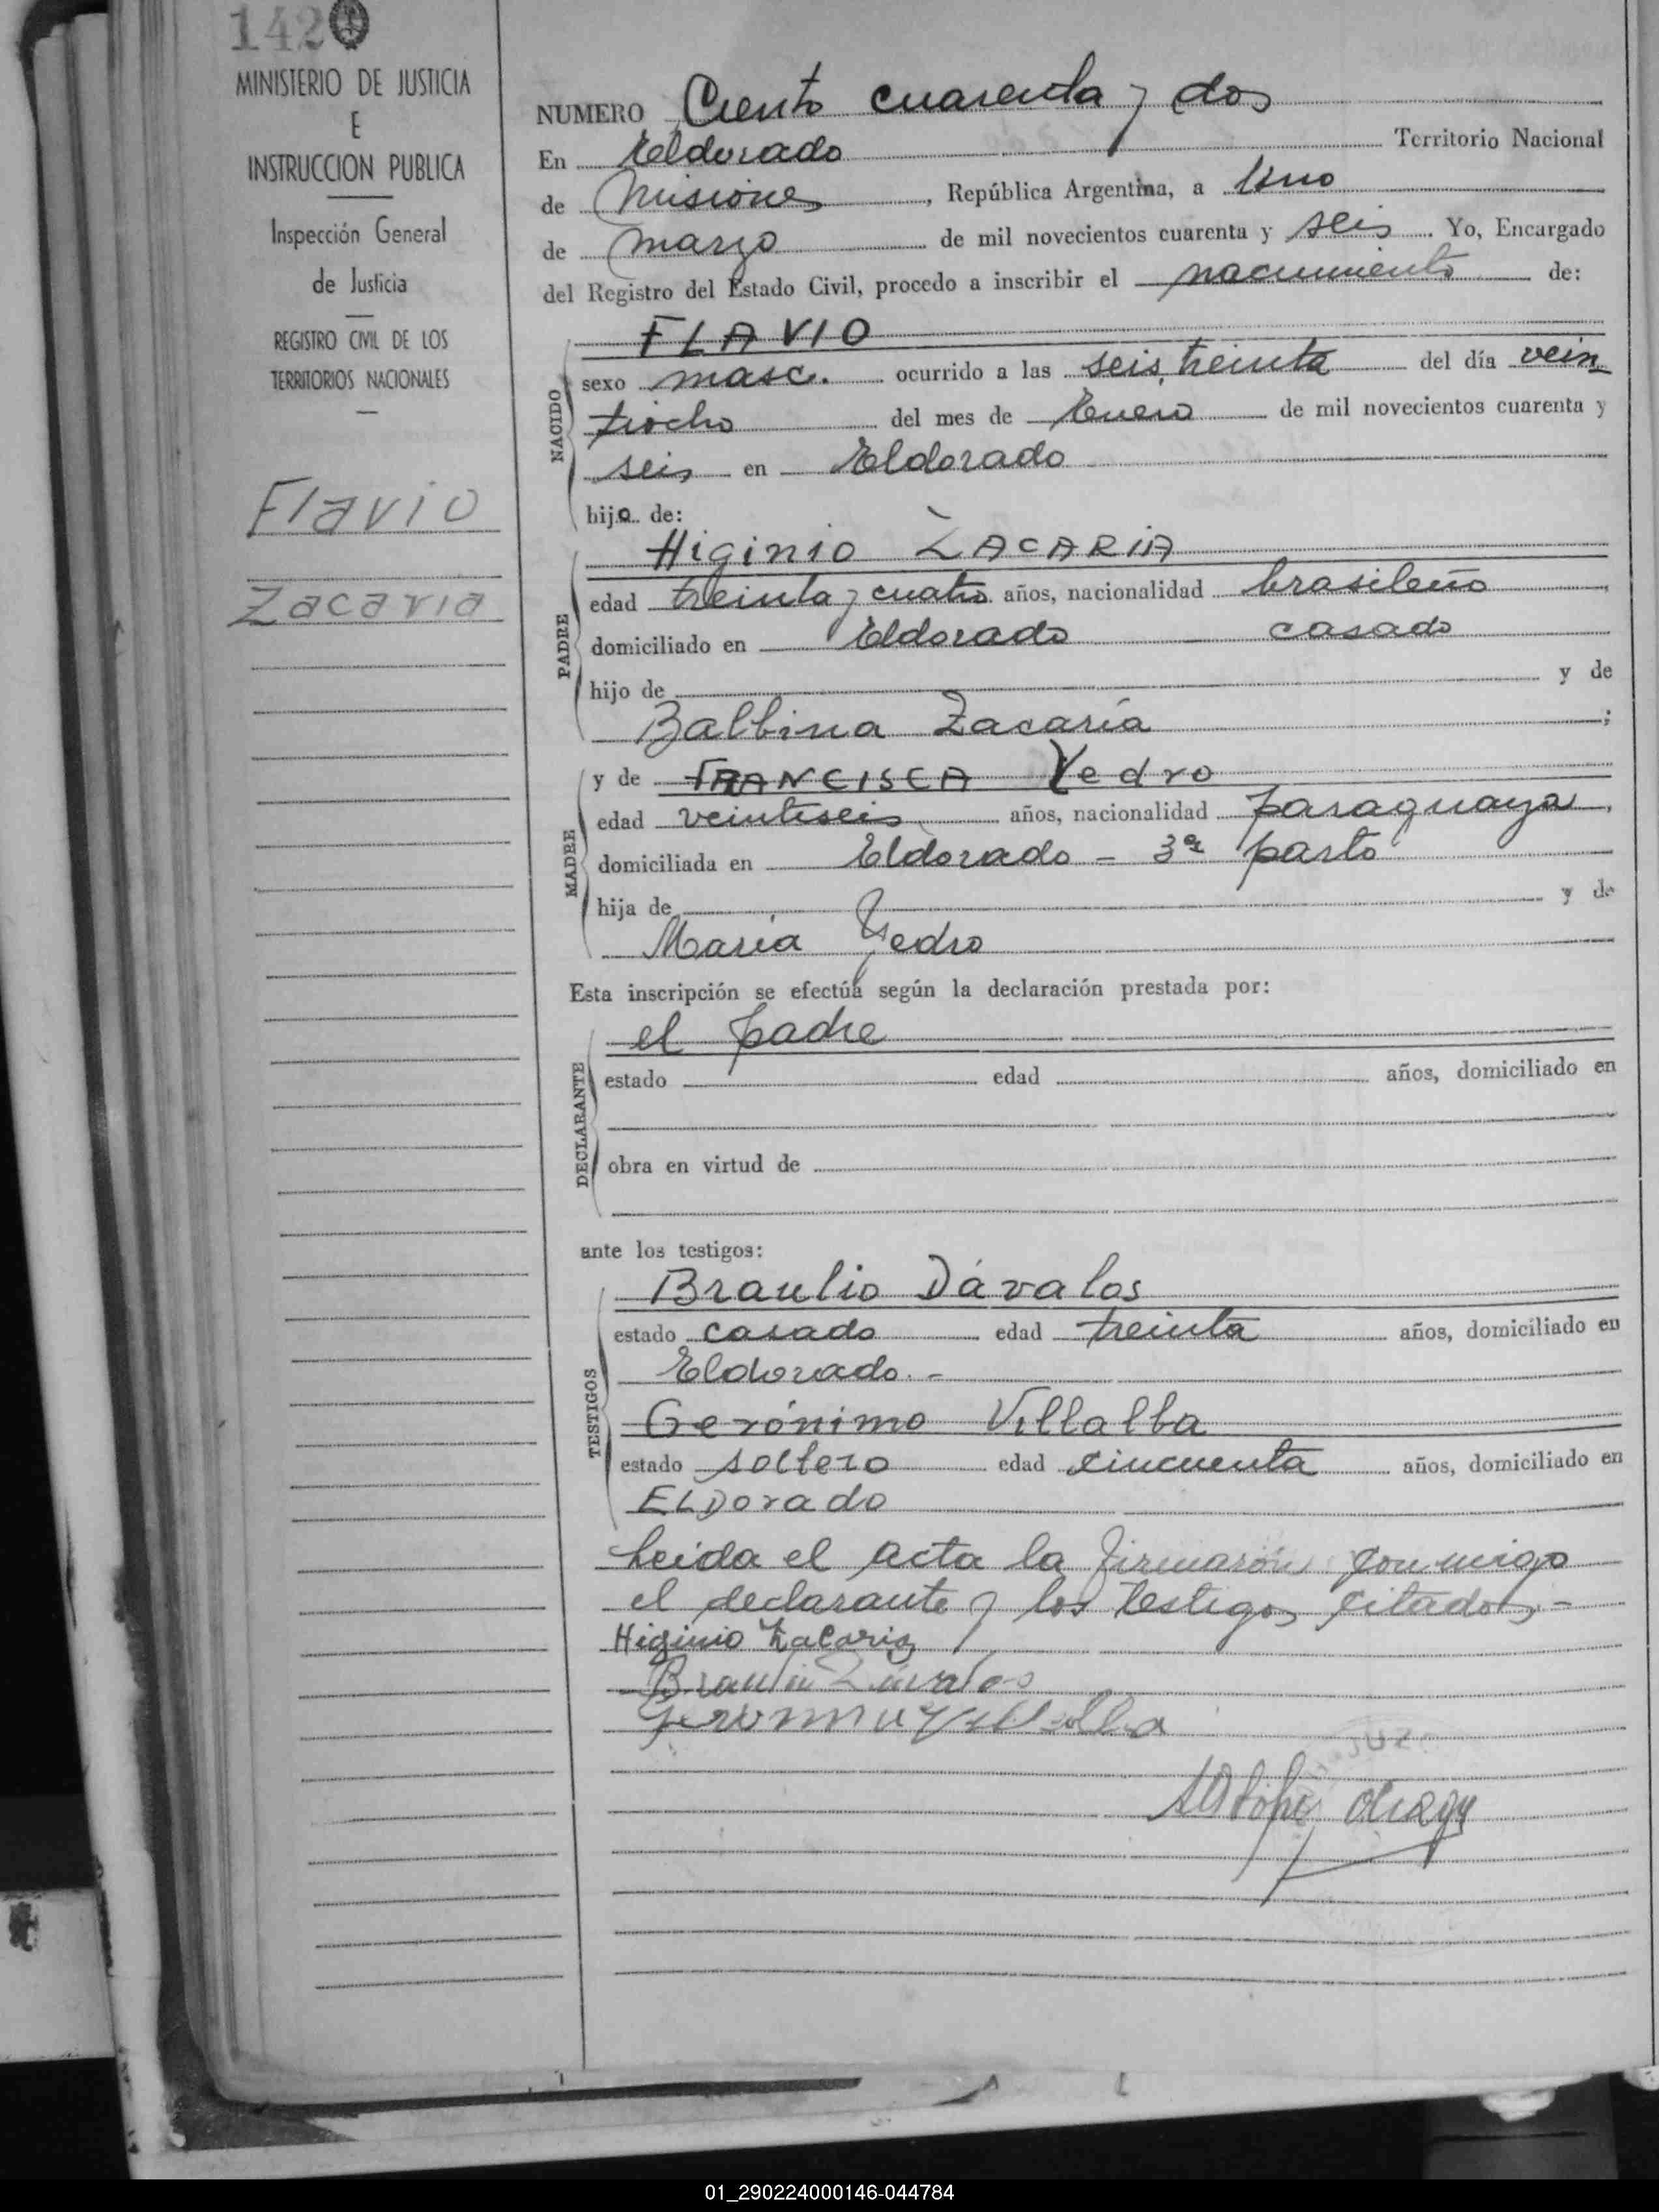 142
MINISTERIO DE JUSTICIA
E
INSTRUCCION PUBLICA
Inspección General
de Justicia
REGISTRO CIVIL DE LOS
TERRITORIOS NACIONALES
Flavio
Zacaria
NUMERO Ciento cuarenta y dos
En Eldorado Territorio Nacional
de Misiones, República Argentina, a Uno
de marzo de mil novecientos cuarenta y seis. Yo, Encargado
del Registro del Estado Civil, procedo a inscribir el nacimiento de:
FLAVIO
NACIDO
sexo masc. ocurrido a las seis, treinta del día vein
tiocho del mes de Enero de mil novecientos cuarenta y
seis en Eldorado
hijo de:
Higinio ZACARIA
PADRE
edad treinta y cuatro años, nacionalidad brasileño,
domiciliado en Eldorado casado
hijo de y de
Balbina Zacaría;
MADRE
y de FRANCISCA Yedro
edad veintiseis años, nacionalidad paraguaya,
domiciliada en Eldorado - 3er parto
hija de y de
María Yedro
Esta inscripción se efectúa según la declaración prestada por:
DECLARANTE
el padre
estado edad años, domiciliado en
obra en virtud de
ante los testigos:
TESTIGOS
Braulio Dávalos
estado casado edad treinta años, domiciliado en
Eldorado.-
Gerónimo Villalba
estado soltero edad cincuenta años, domiciliado en
ELDorado
Leida el acta la firmaron conmigo
el declarante y los testigos citados.-
Higinio Zacaria
Braulio Dávalos
Geronimo Villalba
01_290224000146-044784